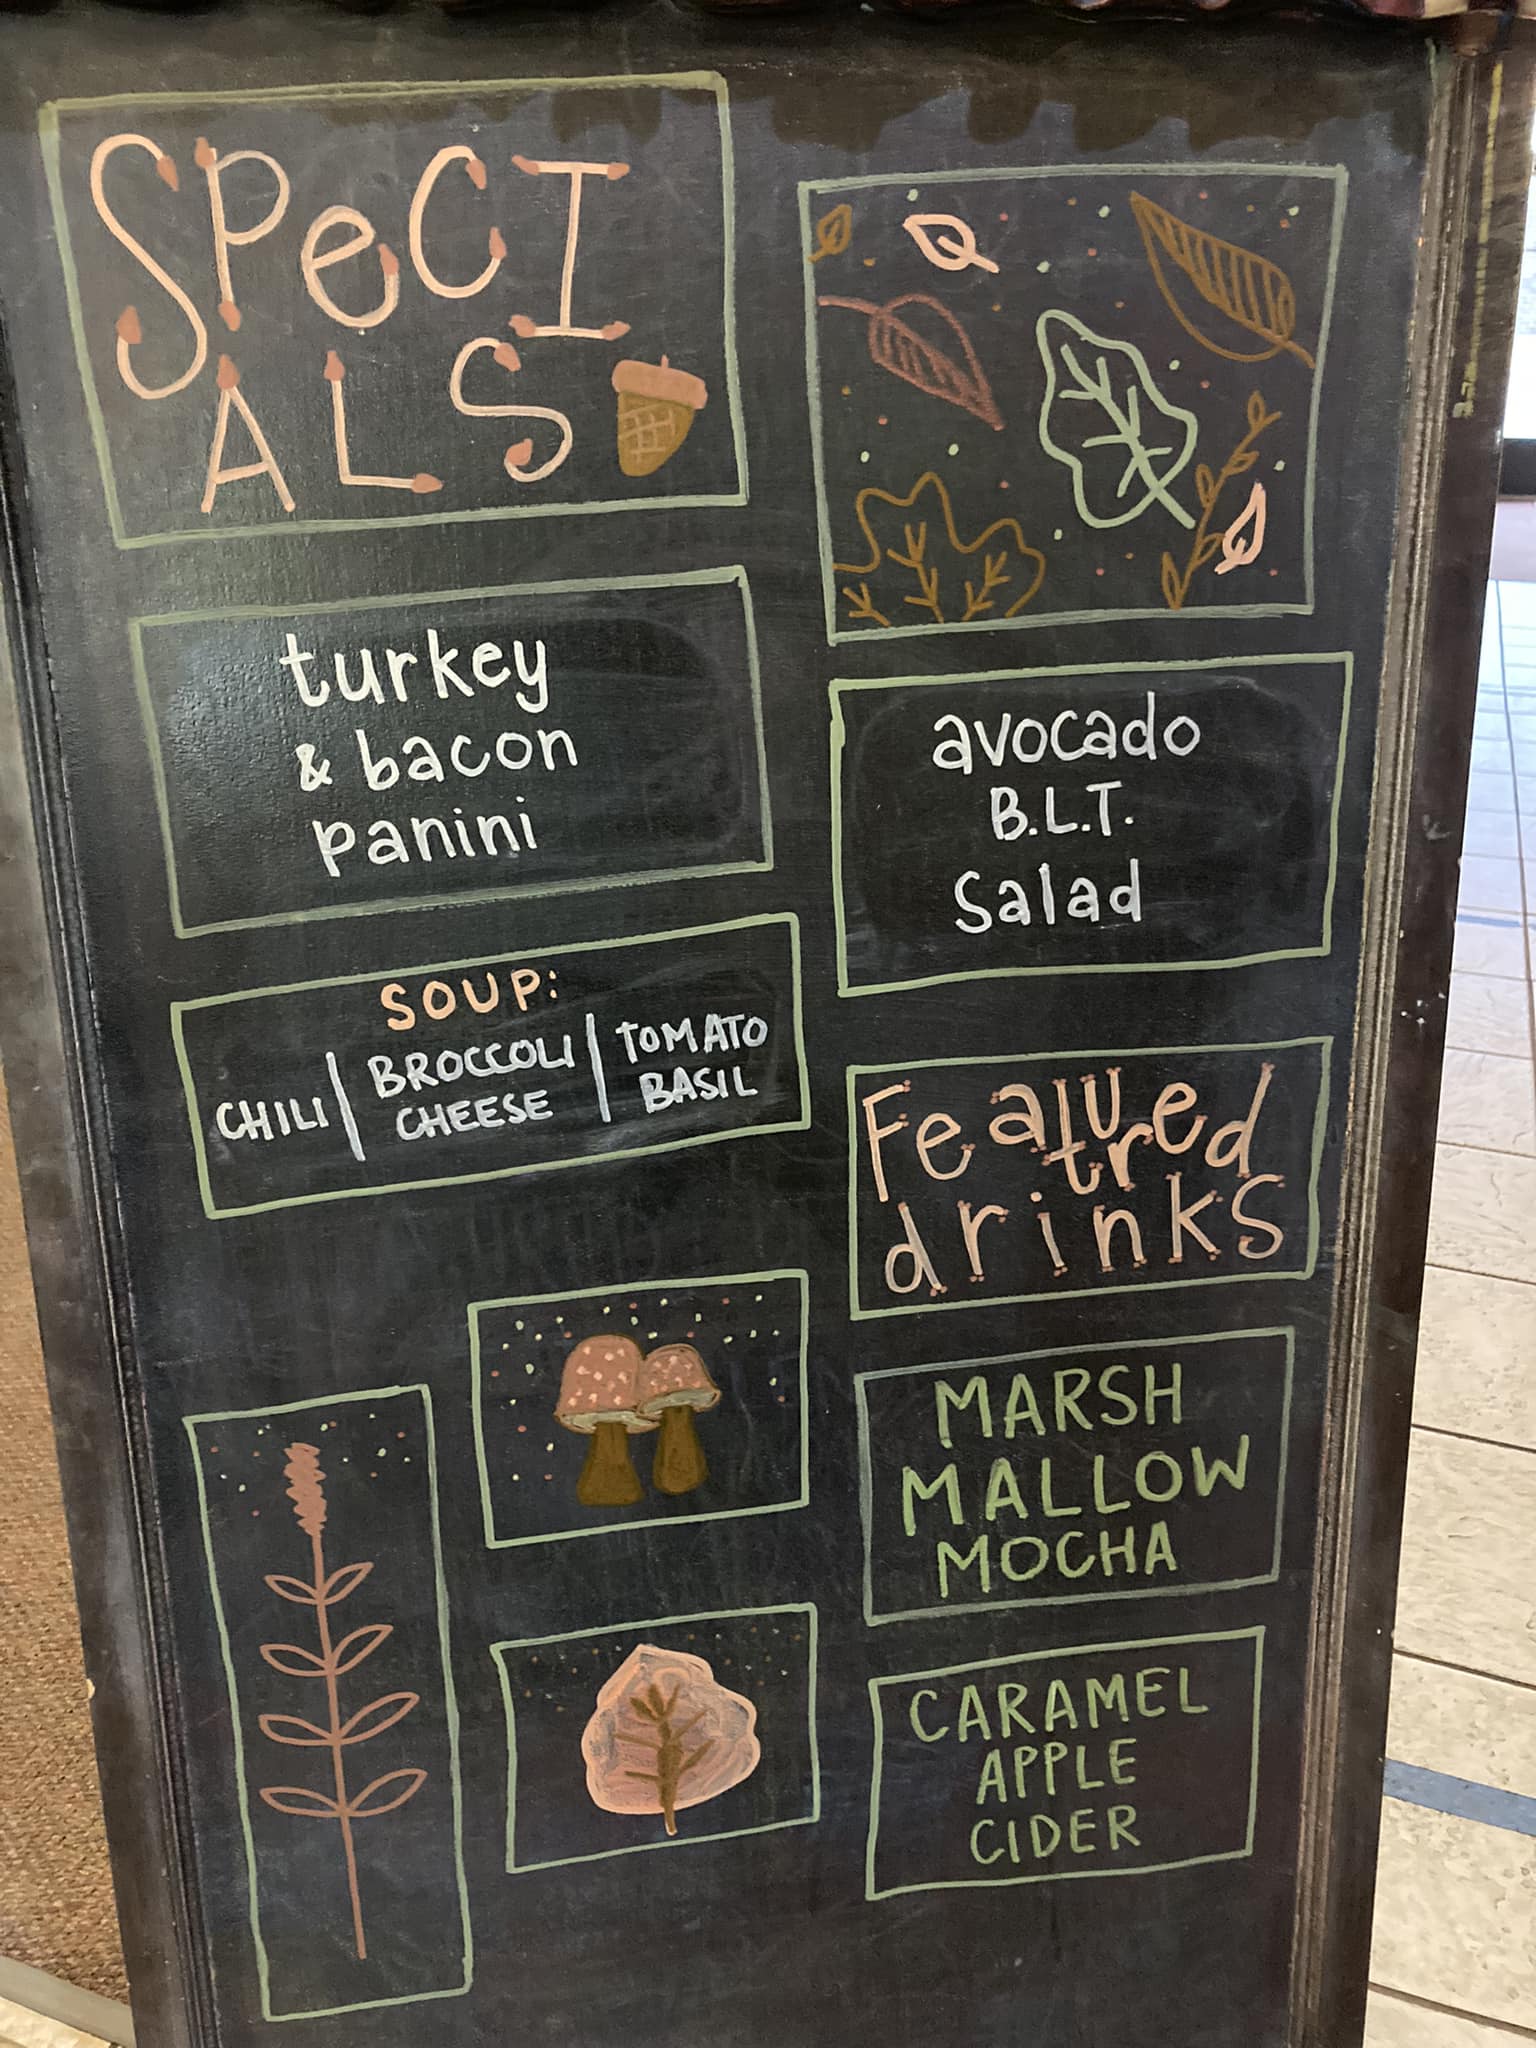 SPeCI
ALS
turkey
& bacon
panini
avocado
B.L.T.
Salad
SOUP:
CHILI | BROCCOLI CHEESE | TOMATO BASIL
Featured
drinks
MARSH
MALLOW
MOCHA
CARAMEL
APPLE
CIDER